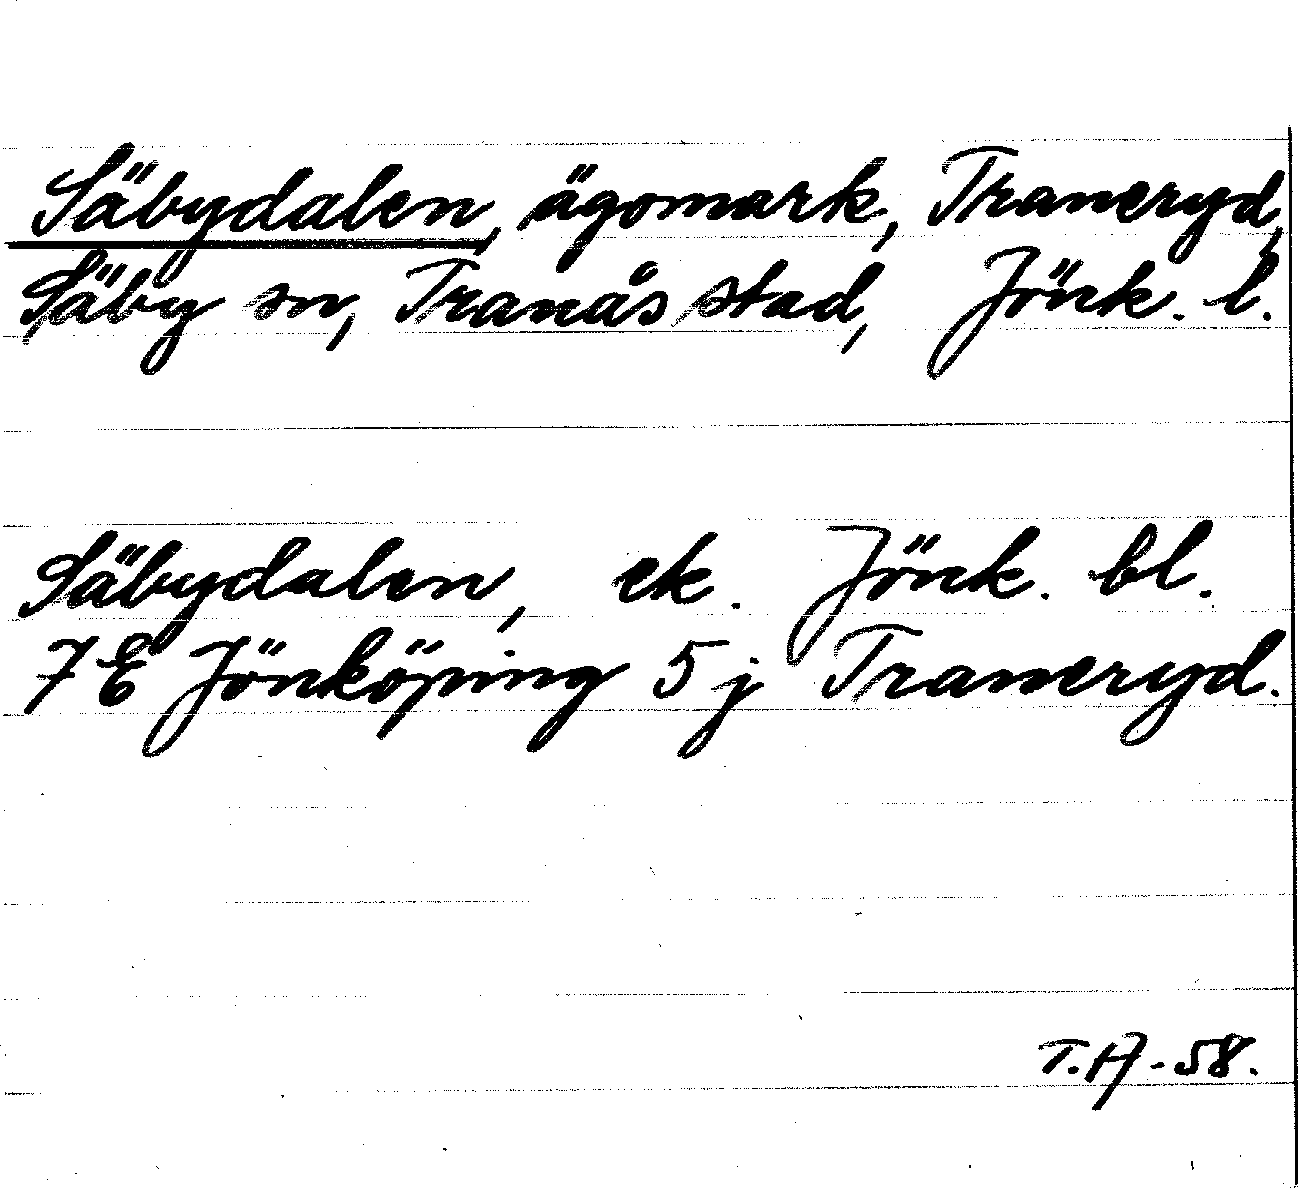 Säbydalen, ägomark, Traneryd,
Säby sn, Tranås stad, Jönk. l.
Säbydalen, ek. Jönk. bl.
7E Jönköping 5j Traneryd.
T.A-58.